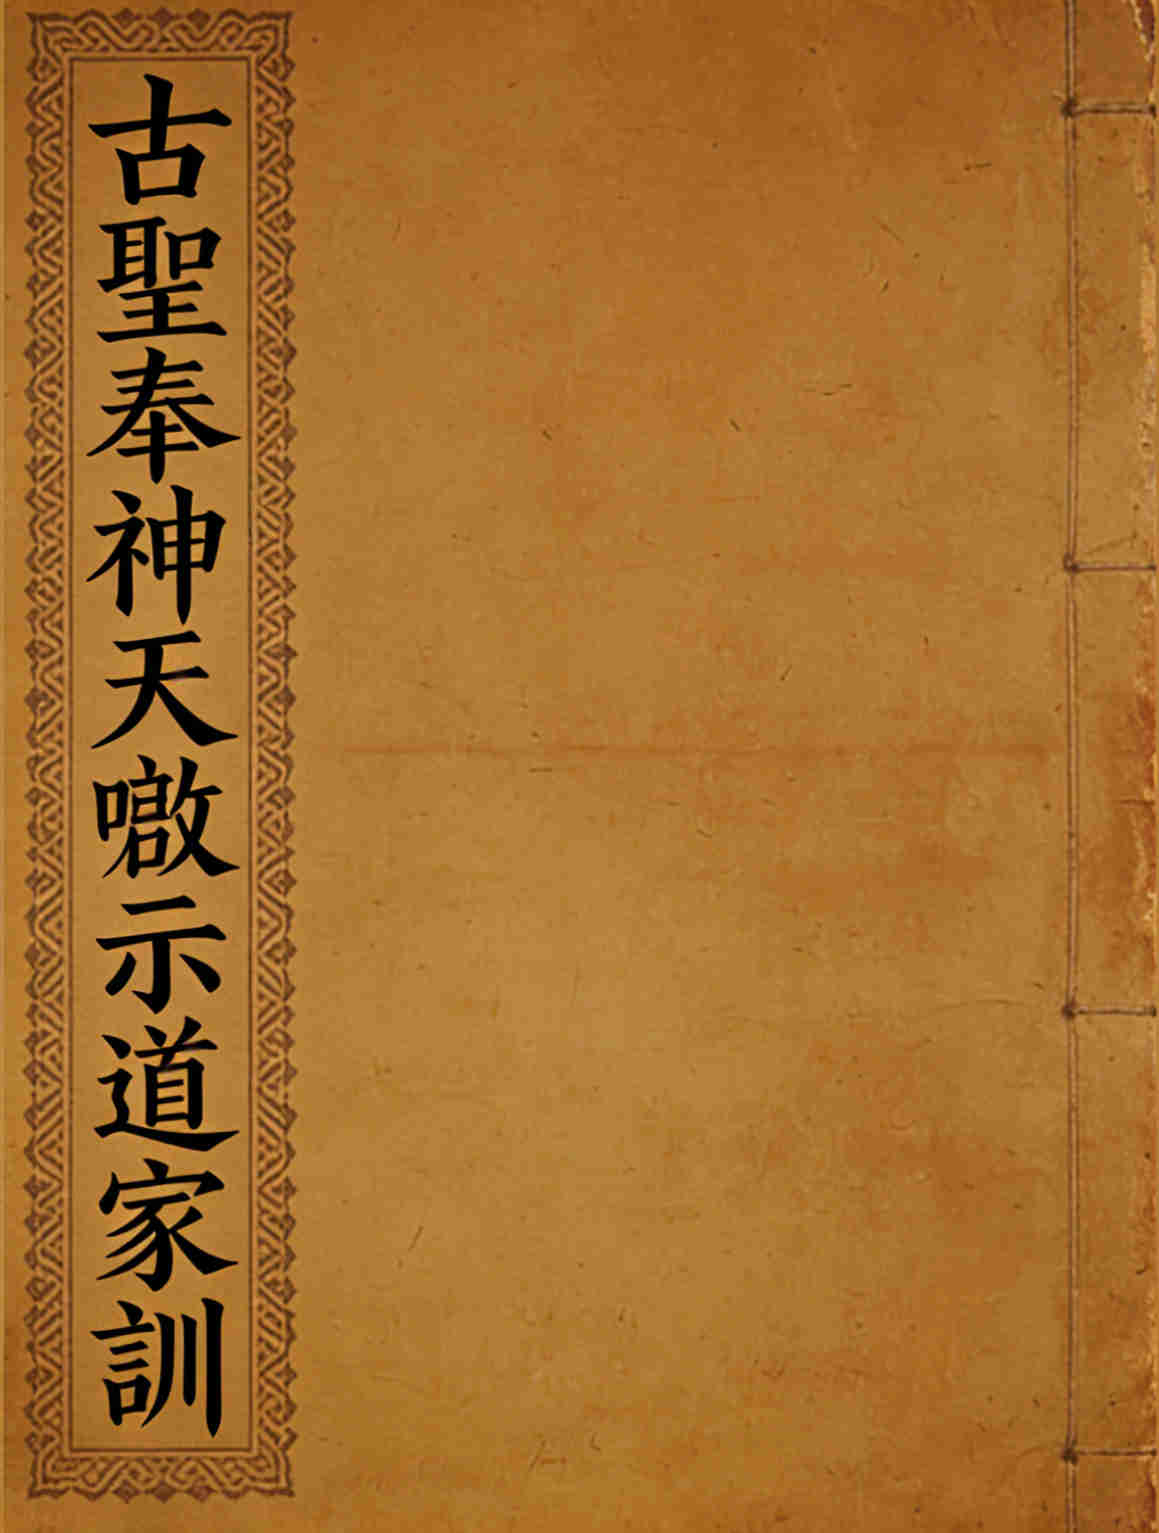 古聖奉神天噭示道家訓